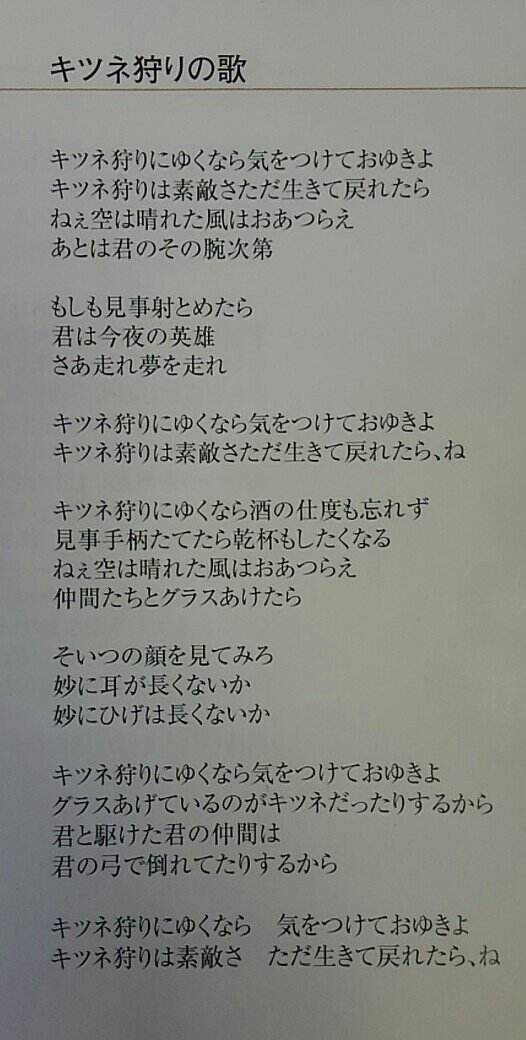 キツネ狩りの歌
キツネ狩りにゆくなら気をつけておゆきよ
キツネ狩りは素敵さただ生きて戻れたら
ねぇ空は晴れた風はおあつらえ
あとは君のその腕次第
もしも見事射とめたら
君は今夜の英雄
さあ走れ夢を走れ
キツネ狩りにゆくなら気をつけておゆきよ
キツネ狩りは素敵さただ生きて戻れたら、ね
キツネ狩りにゆくなら酒の仕度も忘れず
見事手柄たてたら乾杯もしたくなる
ねぇ空は晴れた風はおあつらえ
仲間たちとグラスあけたら
そいつの顔を見てみろ
妙に耳が長くないか
妙にひげは長くないか
キツネ狩りにゆくなら気をつけておゆきよ
グラスあげているのがキツネだったりするから
君と駆けた君の仲間は
君の弓で倒れてたりするから
キツネ狩りにゆくなら　気をつけておゆきよ
キツネ狩りは素敵さ　ただ生きて戻れたら、ね